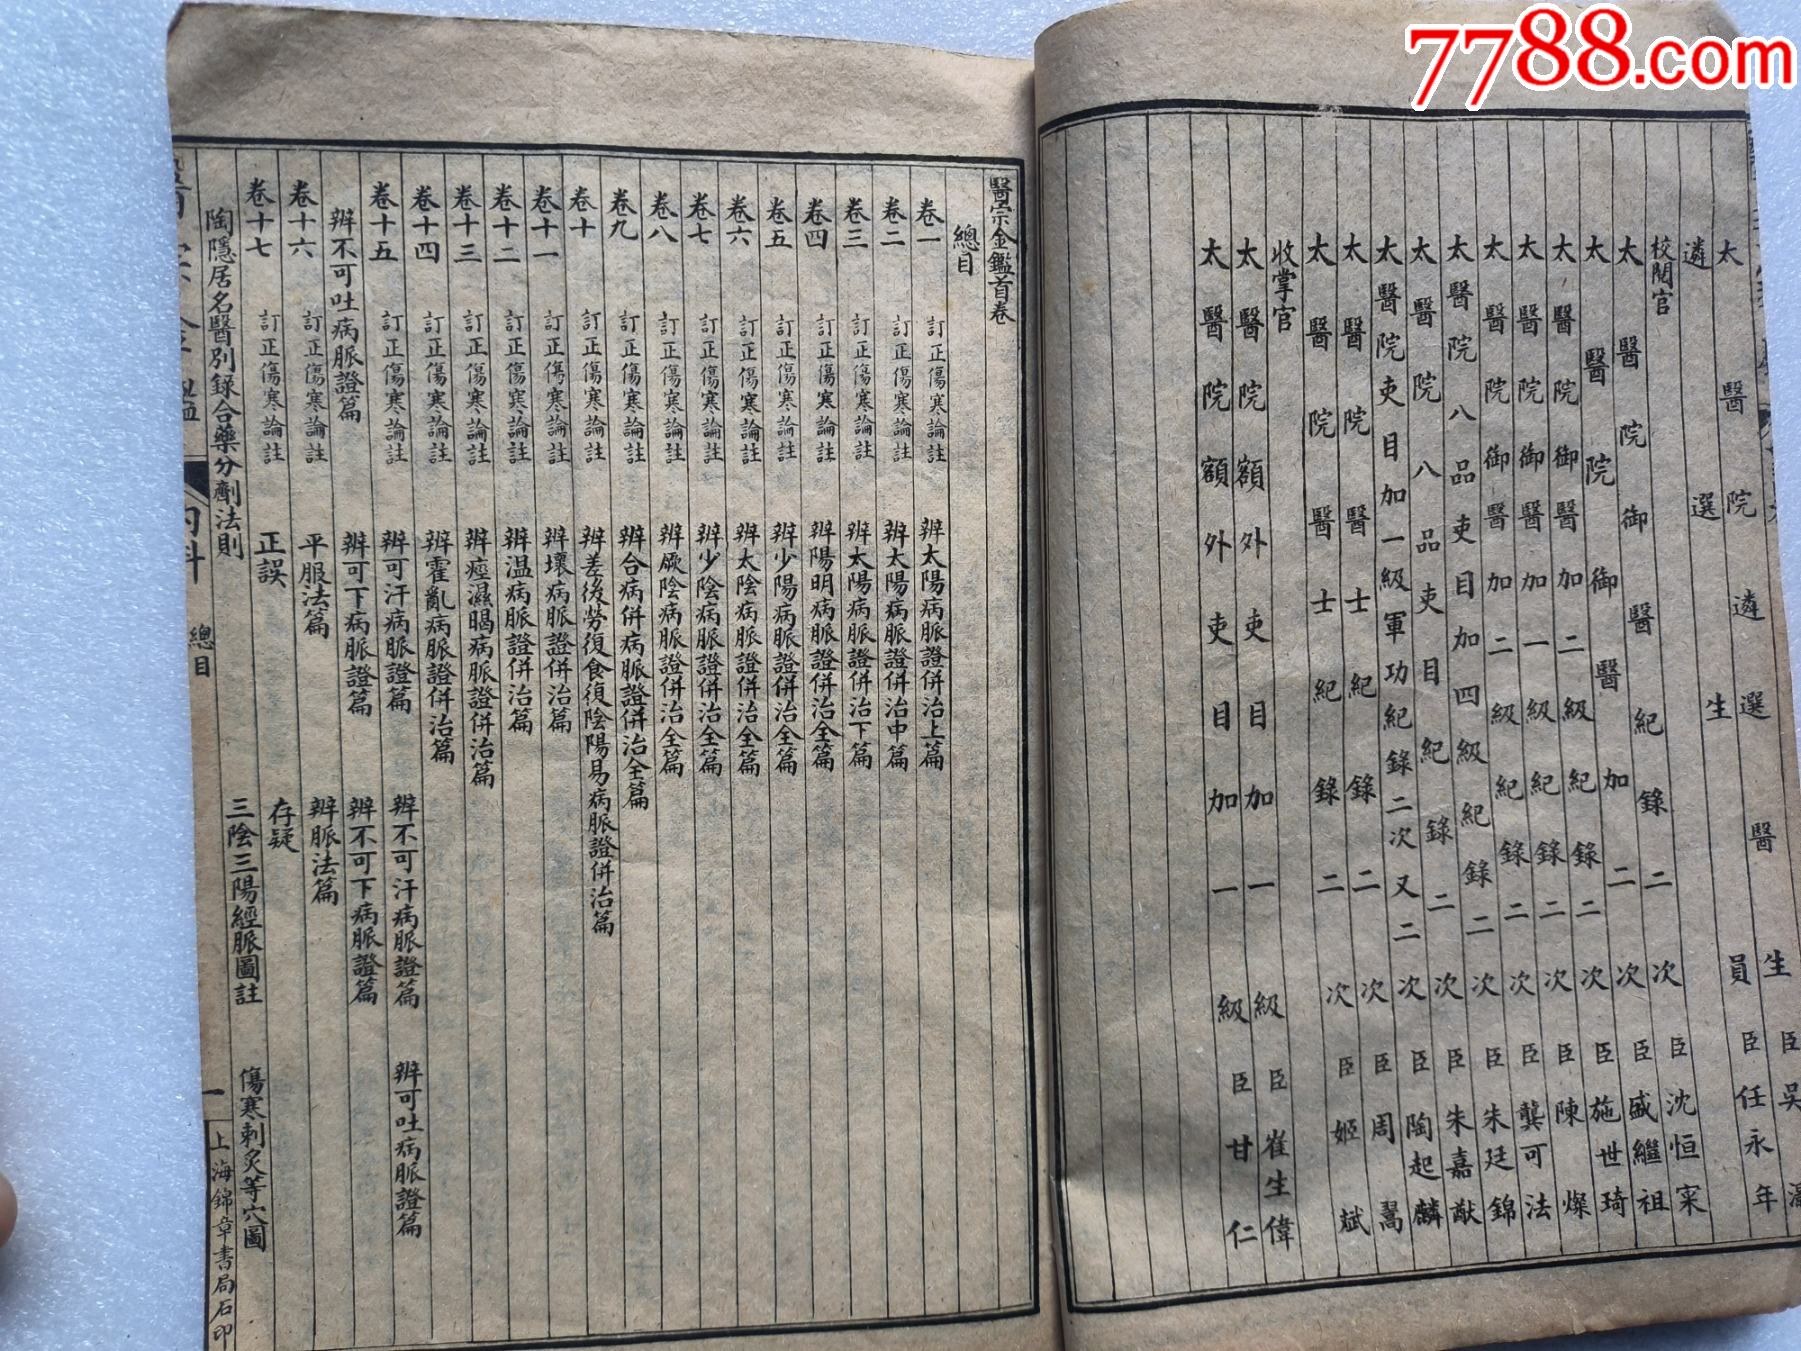 7788.com
太醫院遴選醫生臣吳
遴選生員臣任永年
校閱官
太醫院御醫紀錄二次臣沈恒宷
太醫院御醫加二次臣盛繼祖
太醫院御醫加二級紀錄二次臣施世琦
太醫院御醫加一級紀錄二次臣陳燦
太醫院御醫加二級紀錄二次臣龔可法
太醫院八品吏目加四級紀錄二次臣朱廷錦
太醫院八品吏目紀錄二次臣朱嘉猷
太醫院吏目加一級軍功紀錄二次又二次臣陶起麟
太醫院醫士紀錄二次臣周鬵
太醫院醫士紀錄二次臣姬斌
收掌官
太醫院額外吏目加一級臣崔生偉
太醫院額外吏目加一級臣甘仁
醫宗金鑑首卷
總目
卷一 訂正傷寒論註 辨太陽病脈證併治上篇
卷二 訂正傷寒論註 辨太陽病脈證併治中篇
卷三 訂正傷寒論註 辨太陽病脈證併治下篇
卷四 訂正傷寒論註 辨陽明病脈證併治全篇
卷五 訂正傷寒論註 辨少陽病脈證併治全篇
卷六 訂正傷寒論註 辨太陰病脈證併治全篇
卷七 訂正傷寒論註 辨少陰病脈證併治全篇
卷八 訂正傷寒論註 辨厥陰病脈證併治全篇
卷九 訂正傷寒論註 辨合病併病脈證併治全篇
卷十 訂正傷寒論註 辨差後勞復食復陰陽易病脈證併治篇
卷十一 訂正傷寒論註 辨壞病脈證併治篇
卷十二 訂正傷寒論註 辨溫病脈證併治篇
卷十三 訂正傷寒論註 辨痙濕暍病脈證併治篇
卷十四 訂正傷寒論註 辨霍亂病脈證併治篇
卷十五 訂正傷寒論註 辨可汗病脈證篇 辨不可汗病脈證篇 辨可吐病脈證篇
辨不可吐病脈證篇 辨可下病脈證篇 辨不可下病脈證篇
卷十六 訂正傷寒論註 平脈法篇 辨脈法篇
卷十七 訂正傷寒論註 正誤 存疑
陶隱居名醫別錄合藥分劑法則 三陰三陽經脈圖註 傷寒刺炙等穴圖
醫宗金鑑 內科 總目 一 上海錦章書局石印